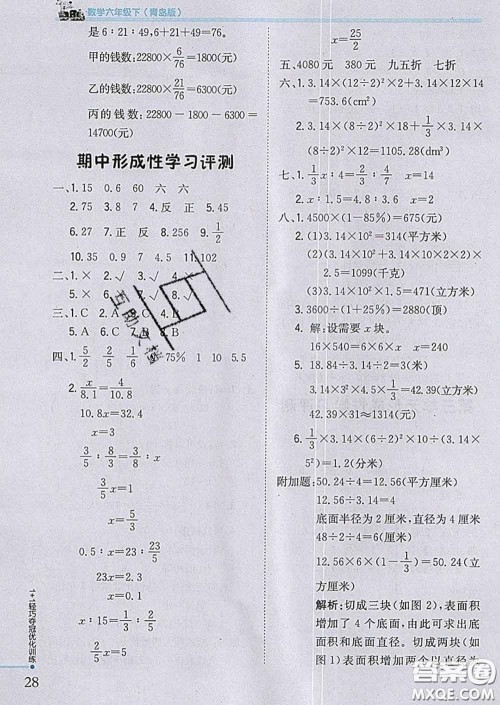 数学六年级下(青岛版)
是6:21:49,6+21+49=76。
甲的钱数:22800×6/76=1800(元)
乙的钱数:22800×21/76=6300(元)
丙的钱数:22800-1800-6300=
14700(元)
期中形成性学习评测
一、1.15 0.6 60 六 六
2.75 3.8 7 反 正 5.45
6.27 7.正 反 8.256 9.1/2
10.35 0.9 4 7.5 11.102
二、1.× 2.√ 3. 4.×
5.× 7.√ 8.
三、1.C 2.C 3.B 4.
5.A 6.C 7.B
四、1.5/2 2/5 75% 1 10 5.5
2. x/8.1=4/10.8
10.8x=32.4
x=3
3/5:8/3=x:5
8/3x=3/5×5
8/3x=3
x=9/8
0.5:x=23:23/5
23x=23/10
x=0.1
x:15=1/3:1/5
1/5x=15×1/3
1/5x=5
x=25
五、4080元 380元 九五折 七折
六、1.3.14×(12÷2)²×2+3.14×12×14
=753.6(cm²)
2.3.14×(8÷2)²×18+1/3×3.14×
(8÷2)²×12=1105.28(dm³)
七、1.1/3:4 2.3:π
八、1.4500×(1-85%)=675(元)
2.(1)3.14×10²=314(平方米)
(2)(3.14×10²+3.14×10×2×2)×
2.5=1099(千克)
(3)3.14×10²×1.5=471(立方米)
3.3600÷(1+1/4)=2880(顶)
4.解:设需要x块。
16×540=6×6x x=240
5.18.84÷3.14÷2=3(米)
1/3×3.14×3²×4.5=42.39(立方米)
42.39×31≈1314(元)
6.1/3×3.14×(6÷2)²×10÷(3.14×
5²)=1.2(分米)
附加题:50.24÷4=12.56(平方厘米)
12.56÷3.14=4
底面半径为2厘米,直径为4厘米
48÷2÷4=6(厘米)
12.56×6×(1-1/3)=50.24(立方
厘米)
解析:切成三块(如图2),表面积
增加了4个底面,由此可求出底
面积和底面直径。切成两块(如
图1)表面积增加两个以直径为
1+1轻巧夺冠优化训练
28
互助文档
答案圈
MXQE.COM